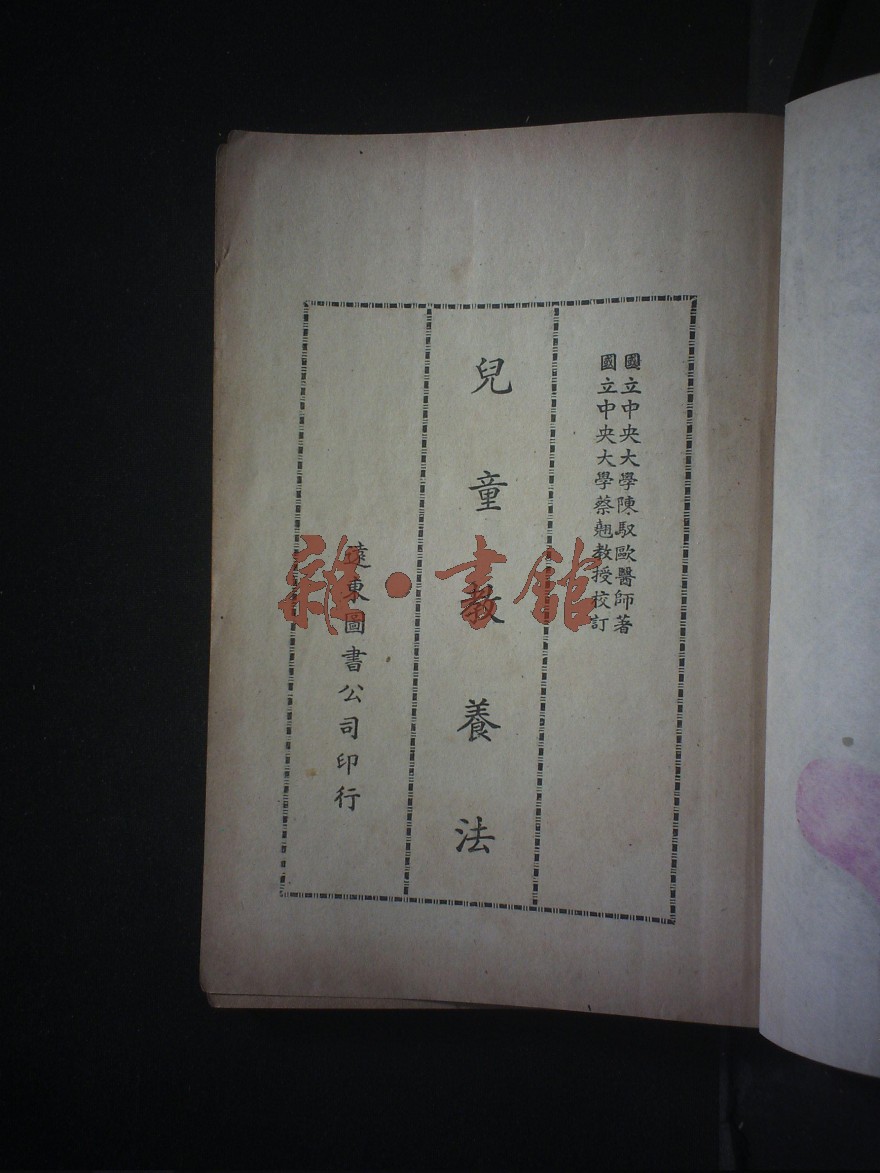 國立中央大學陳馭歐醫師著
國立中央大學蔡翹教授校訂
兒童教養法
遠東圖書公司印行
雜·書館